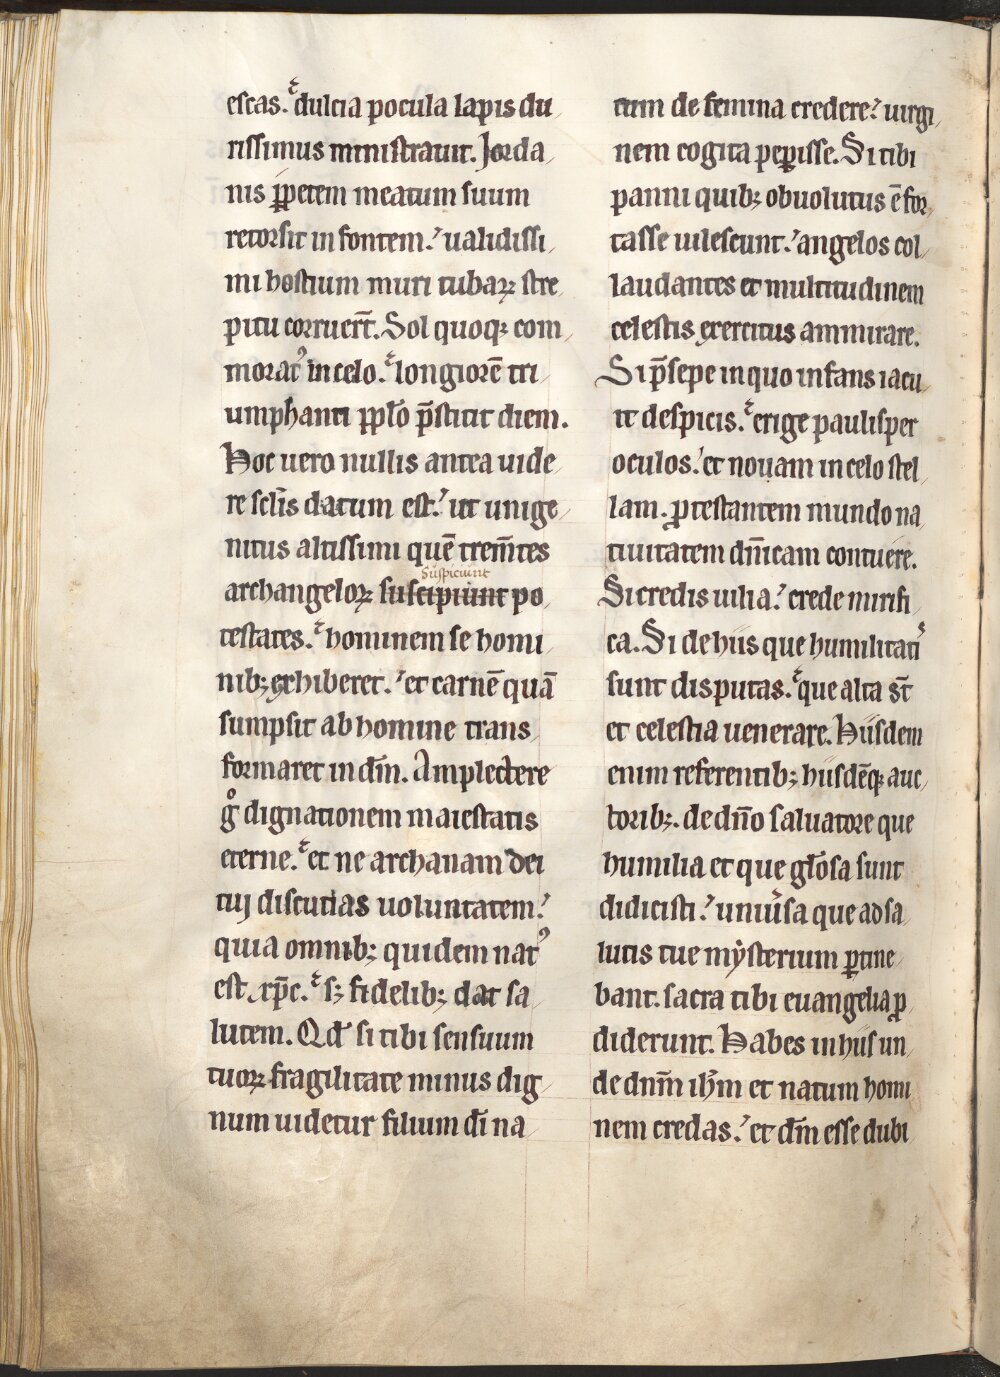 escas. dulcia pocula lapis du
rissimus ministrauit. Jorda
nis ꝑpetem meatum suum
retorsit in fontem. ualidissi
mi hostium muri tubaꝝ stre
pitu corruer̄t. Sol quoqꝫ com
moratꝰ in celo. longiorē tri
umphanti pplo p̄stitit diem.
Hoc uero nullis antea uide
re sclis datum est. ut unige
nitus altissimi quē trem̄tes
archangeloꝝ suscipiunt po
suspiciunt
testates. hominem se homi
nibꝫ exhiberet. et carnē quā
sumpsit ab homine trans
formaret in dm̄. Amplectere
gͦ dignationem maiestatis
eterne. et ne archanam dei
tui discutias uoluntatem.
quia omnibꝫ quidem natꝰ
est xp̄c. sꝫ fidelibꝫ dat sa
lutem. Qd si tibi sensuum
tuoꝝ fragilitate minus dig
num uidetur filium dī na
tum de femina credere. uirgi
nem cogita peperisse. Si tibi
panni quibꝫ obuolutus ē for
tasse uilescunt. angelos col
laudantes et multitudinem
celestis exercitus ammirare.
Si p̄sepe in quo infans iacu
it despicis. erige paulisper
oculos. et nouam in celo stel
lam. ꝓtestantem mundo na
tiuitatem dn̄icam contuere.
Si credis uilia. crede mirifi
ca. Si de hiis que humilitatis
sunt disputas. que alta st̄
et celestia uenerare. Hiisdem
enim referentibꝫ hiisdēqꝫ auc
toribꝫ. de dn̄o saluatore que
humilia et que gl̄osa sunt
didicisti. uniūsa que ad sa
lutis tue mysterium ꝑtine
bant. sacra tibi euangelia ꝓ
diderunt. Habes in hiis un
de dnm̄ ihm̄ et natum homi
nem credas. et dm̄ esse dubi